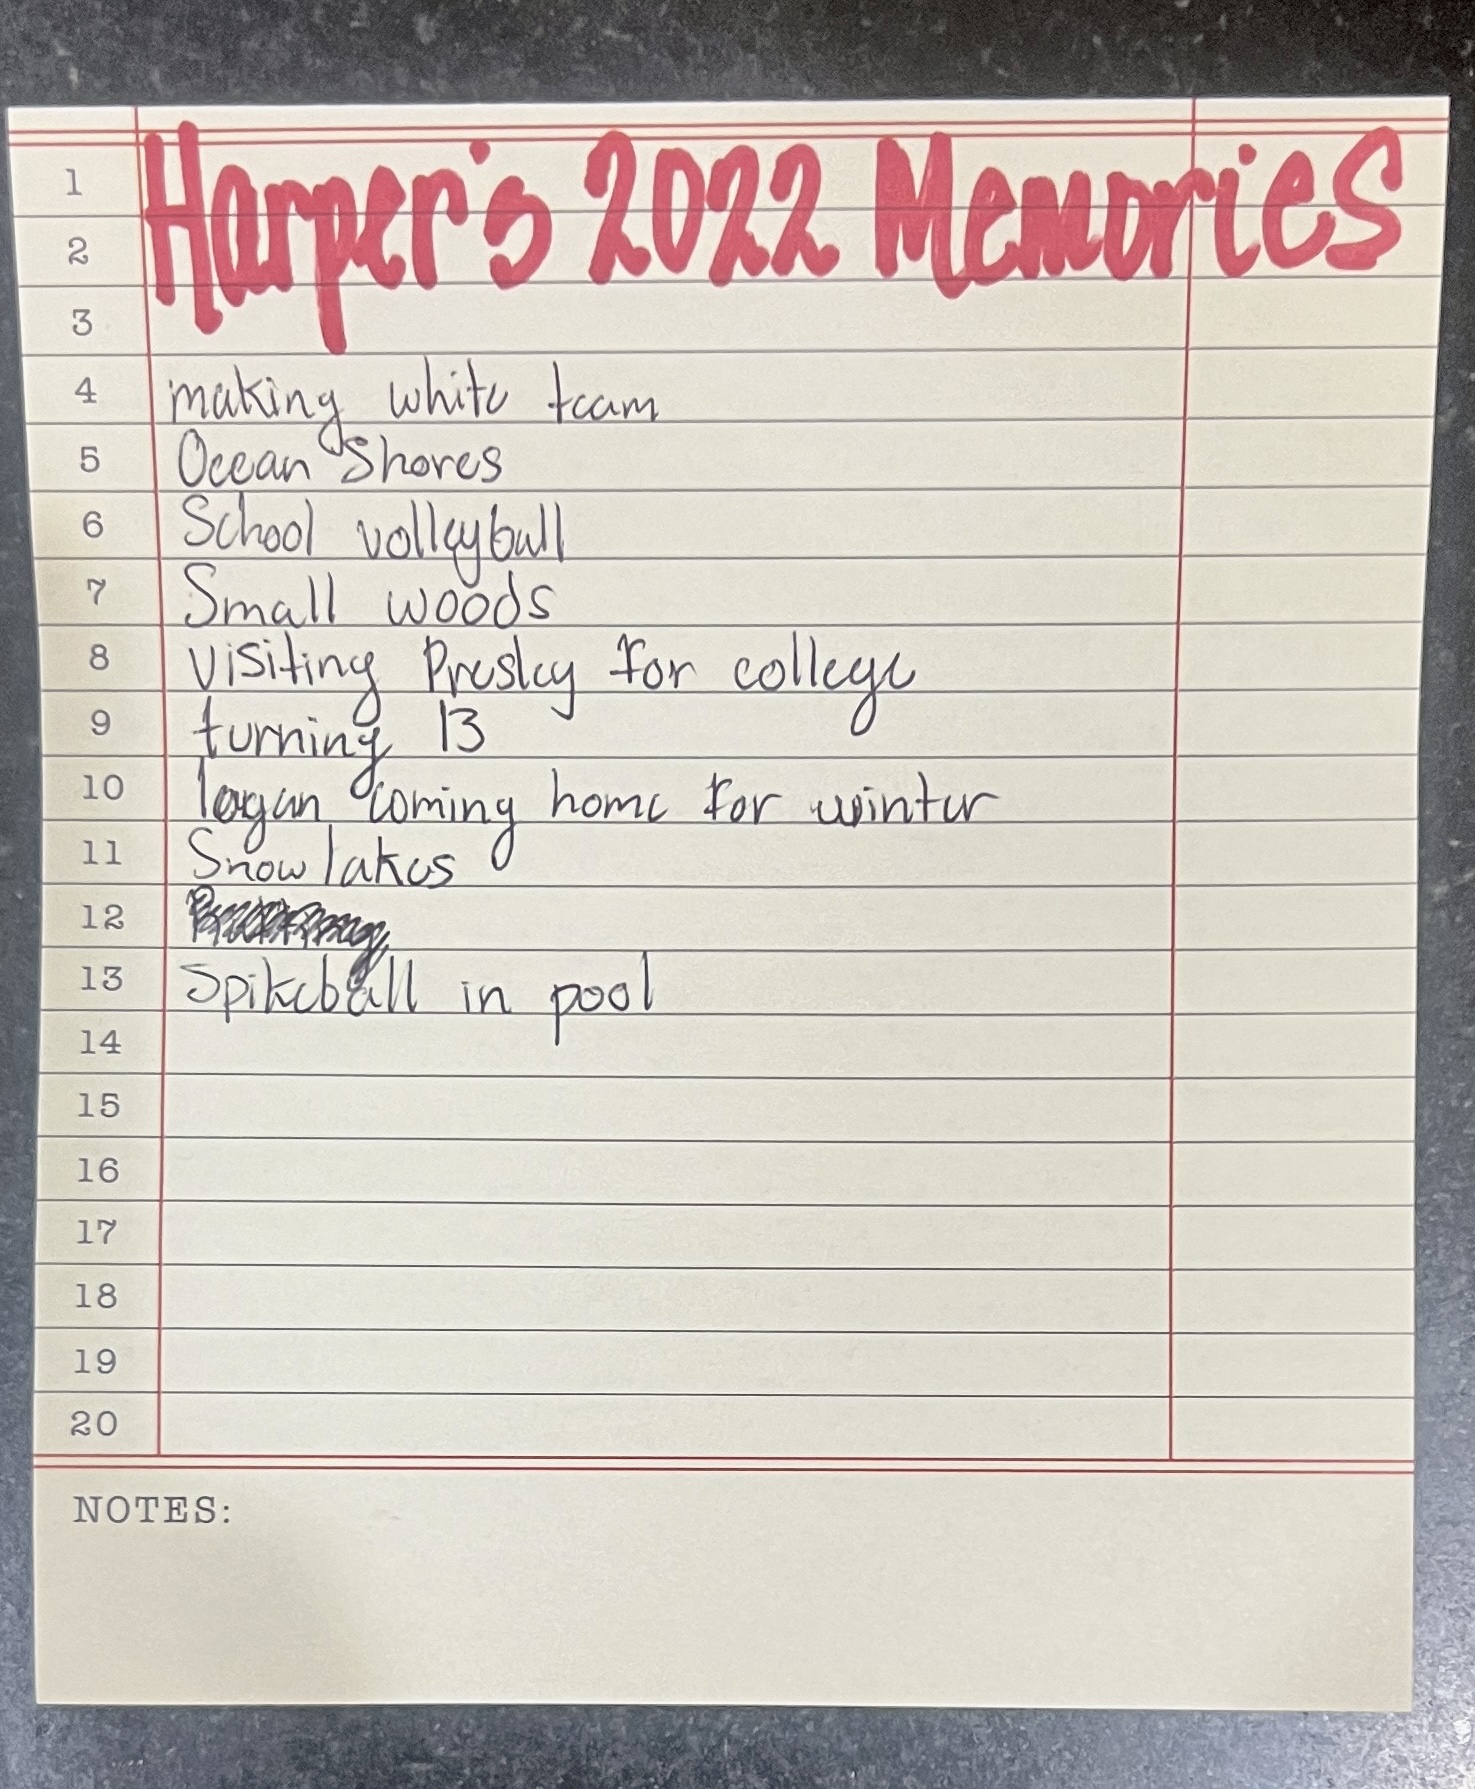 Harper's 2022 Memories
1
2
3
4 making white team
5 Ocean Shores
6 School volleyball
7 Small woods
8 visiting Presley for college
9 turning 13
10 logan coming home for winter
11 Snow lakes
12
13 Spikeball in pool
14
15
16
17
18
19
20
NOTES: